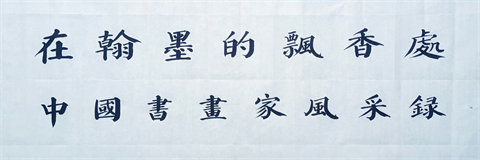 在翰墨的飄香處
中國書畫家風采録